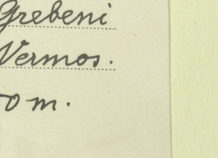 Grebeni
Vermos.
0 m.